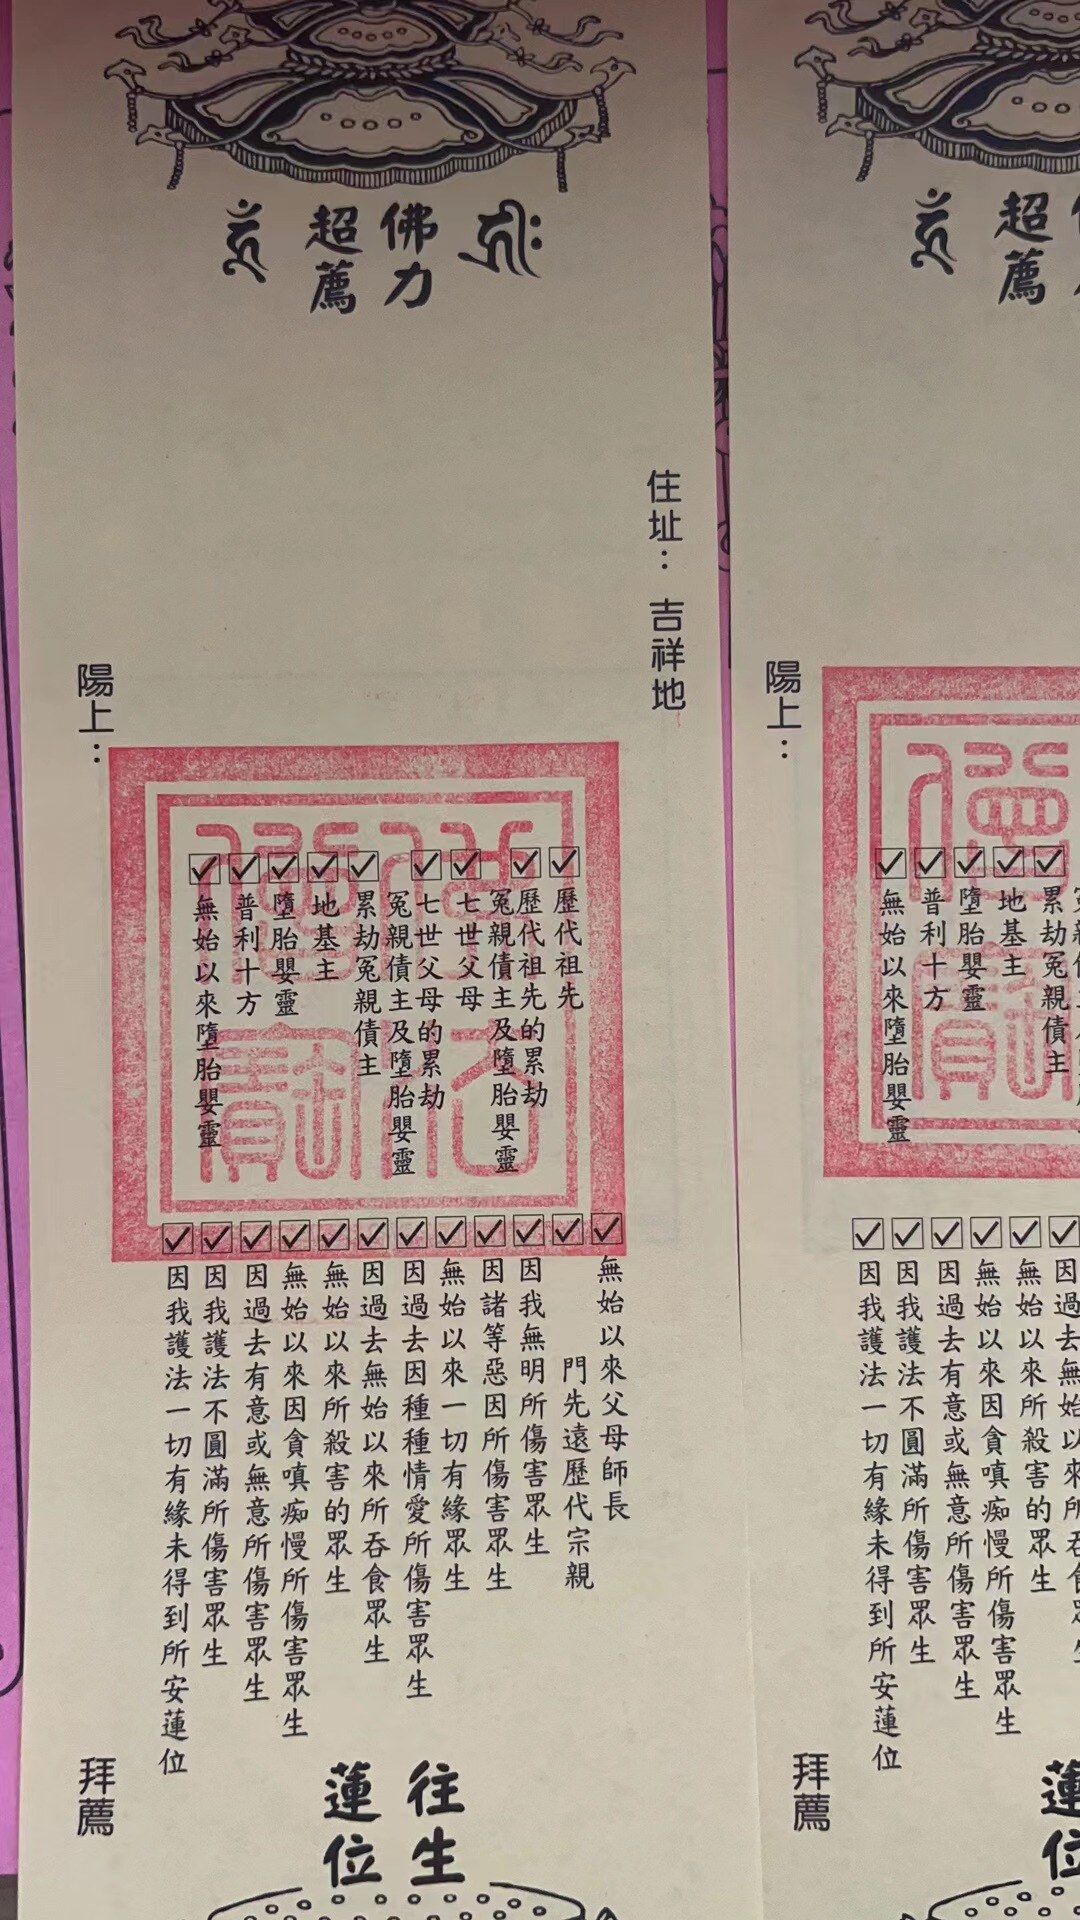 佛力
超薦
住址：吉祥地
陽上：
歷代祖先
歷代祖先的累劫
冤親債主及墮胎嬰靈
七世父母
七世父母的累劫
冤親債主及墮胎嬰靈
累劫冤親債主
地基主
墮胎嬰靈
普利十方
無始以來墮胎嬰靈
無始以來父母師長
門先遠歷代宗親
因我無明所傷害眾生
因諸等惡因所傷害眾生
無始以來一切有緣眾生
因過去因種種情愛所傷害眾生
因過去無始以來所吞食眾生
無始以來所殺害的眾生
無始以來因貪嗔痴慢所傷害眾生
因過去有意或無意所傷害眾生
因我護法不圓滿所傷害眾生
因我護法一切有緣未得到所安蓮位
往生
蓮位
拜薦
超薦
陽上：
累劫冤親債主
地基主
墮胎嬰靈
普利十方
無始以來墮胎嬰靈
無始以來所殺害的眾生
無始以來因貪嗔痴慢所傷害眾生
因過去有意或無意所傷害眾生
因我護法不圓滿所傷害眾生
因我護法一切有緣未得到所安蓮位
蓮位
拜薦